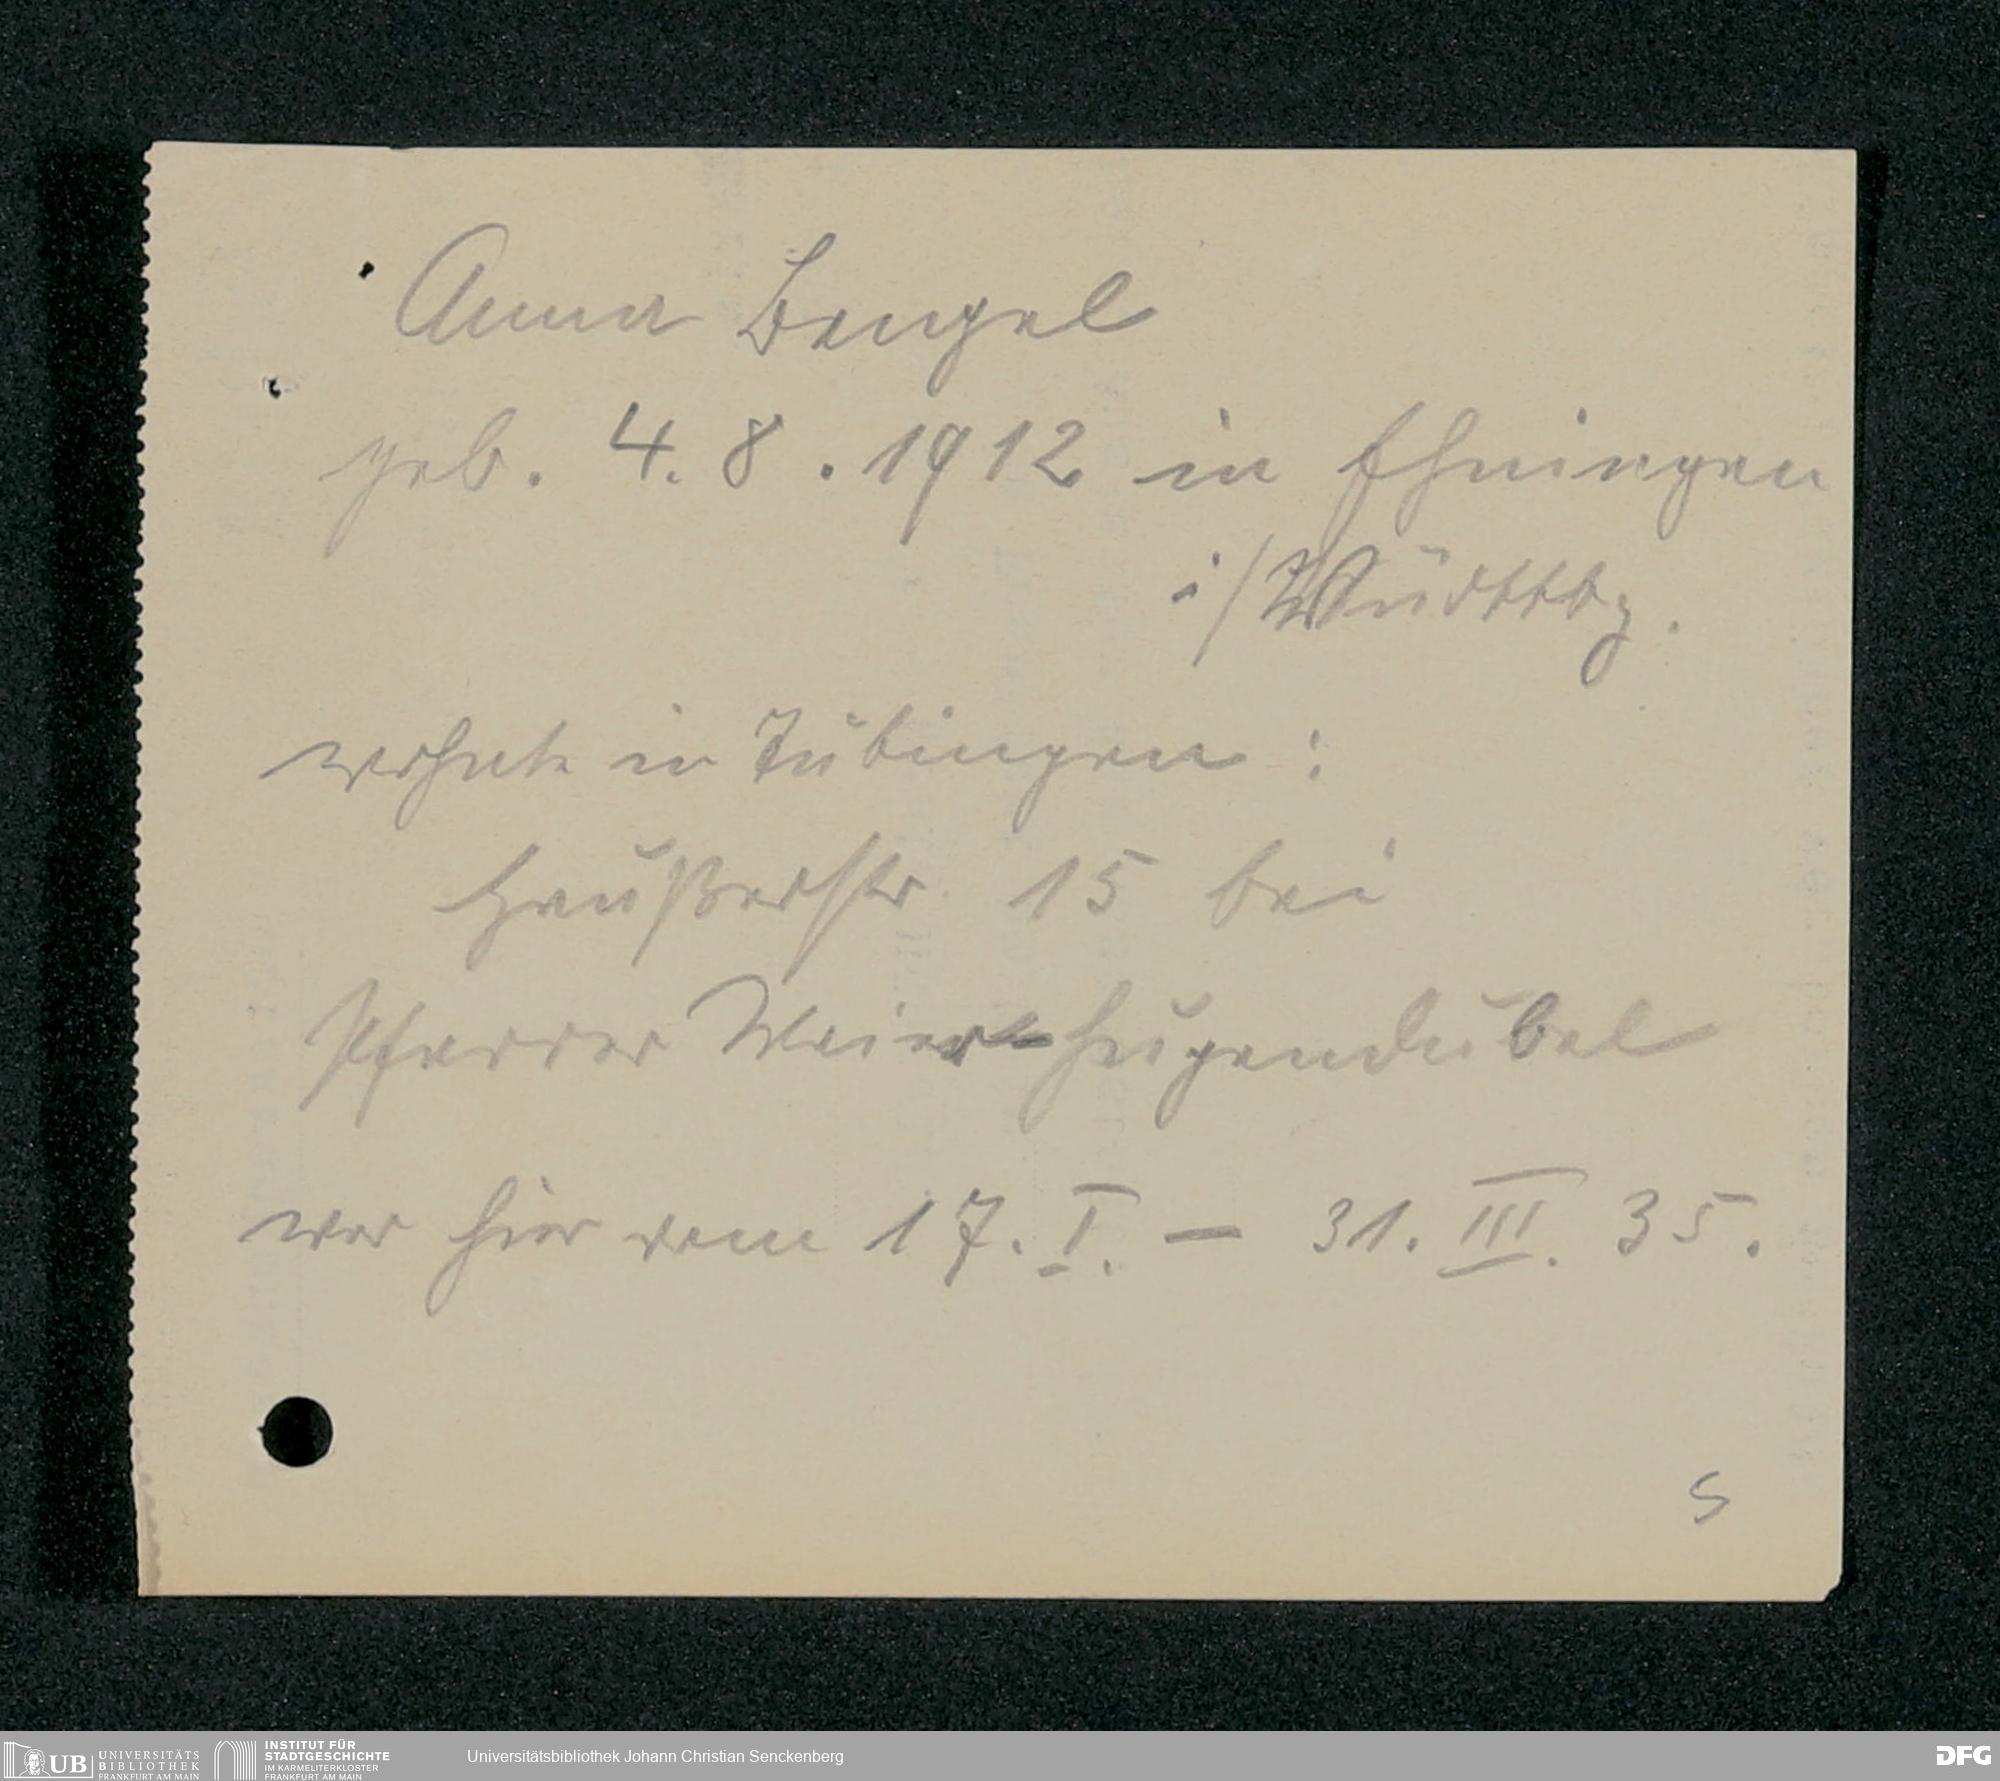 Anna Bengel
geb. 4. 8. 1912 in Ehningen
i/Württbg.
wohnte in Tübingen:
Haußerstr. 15 bei
Pfarrer Meier-Hugendubel
war hier vom 17. I. – 31. III. 35.
S
UB
UNIVERSITÄTS
BIBLIOTHEK
FRANKFURT AM MAIN
INSTITUT FÜR
STADTGESCHICHTE
IM KARMELITERKLOSTER
FRANKFURT AM MAIN
Universitätsbibliothek Johann Christian Senckenberg
DFG